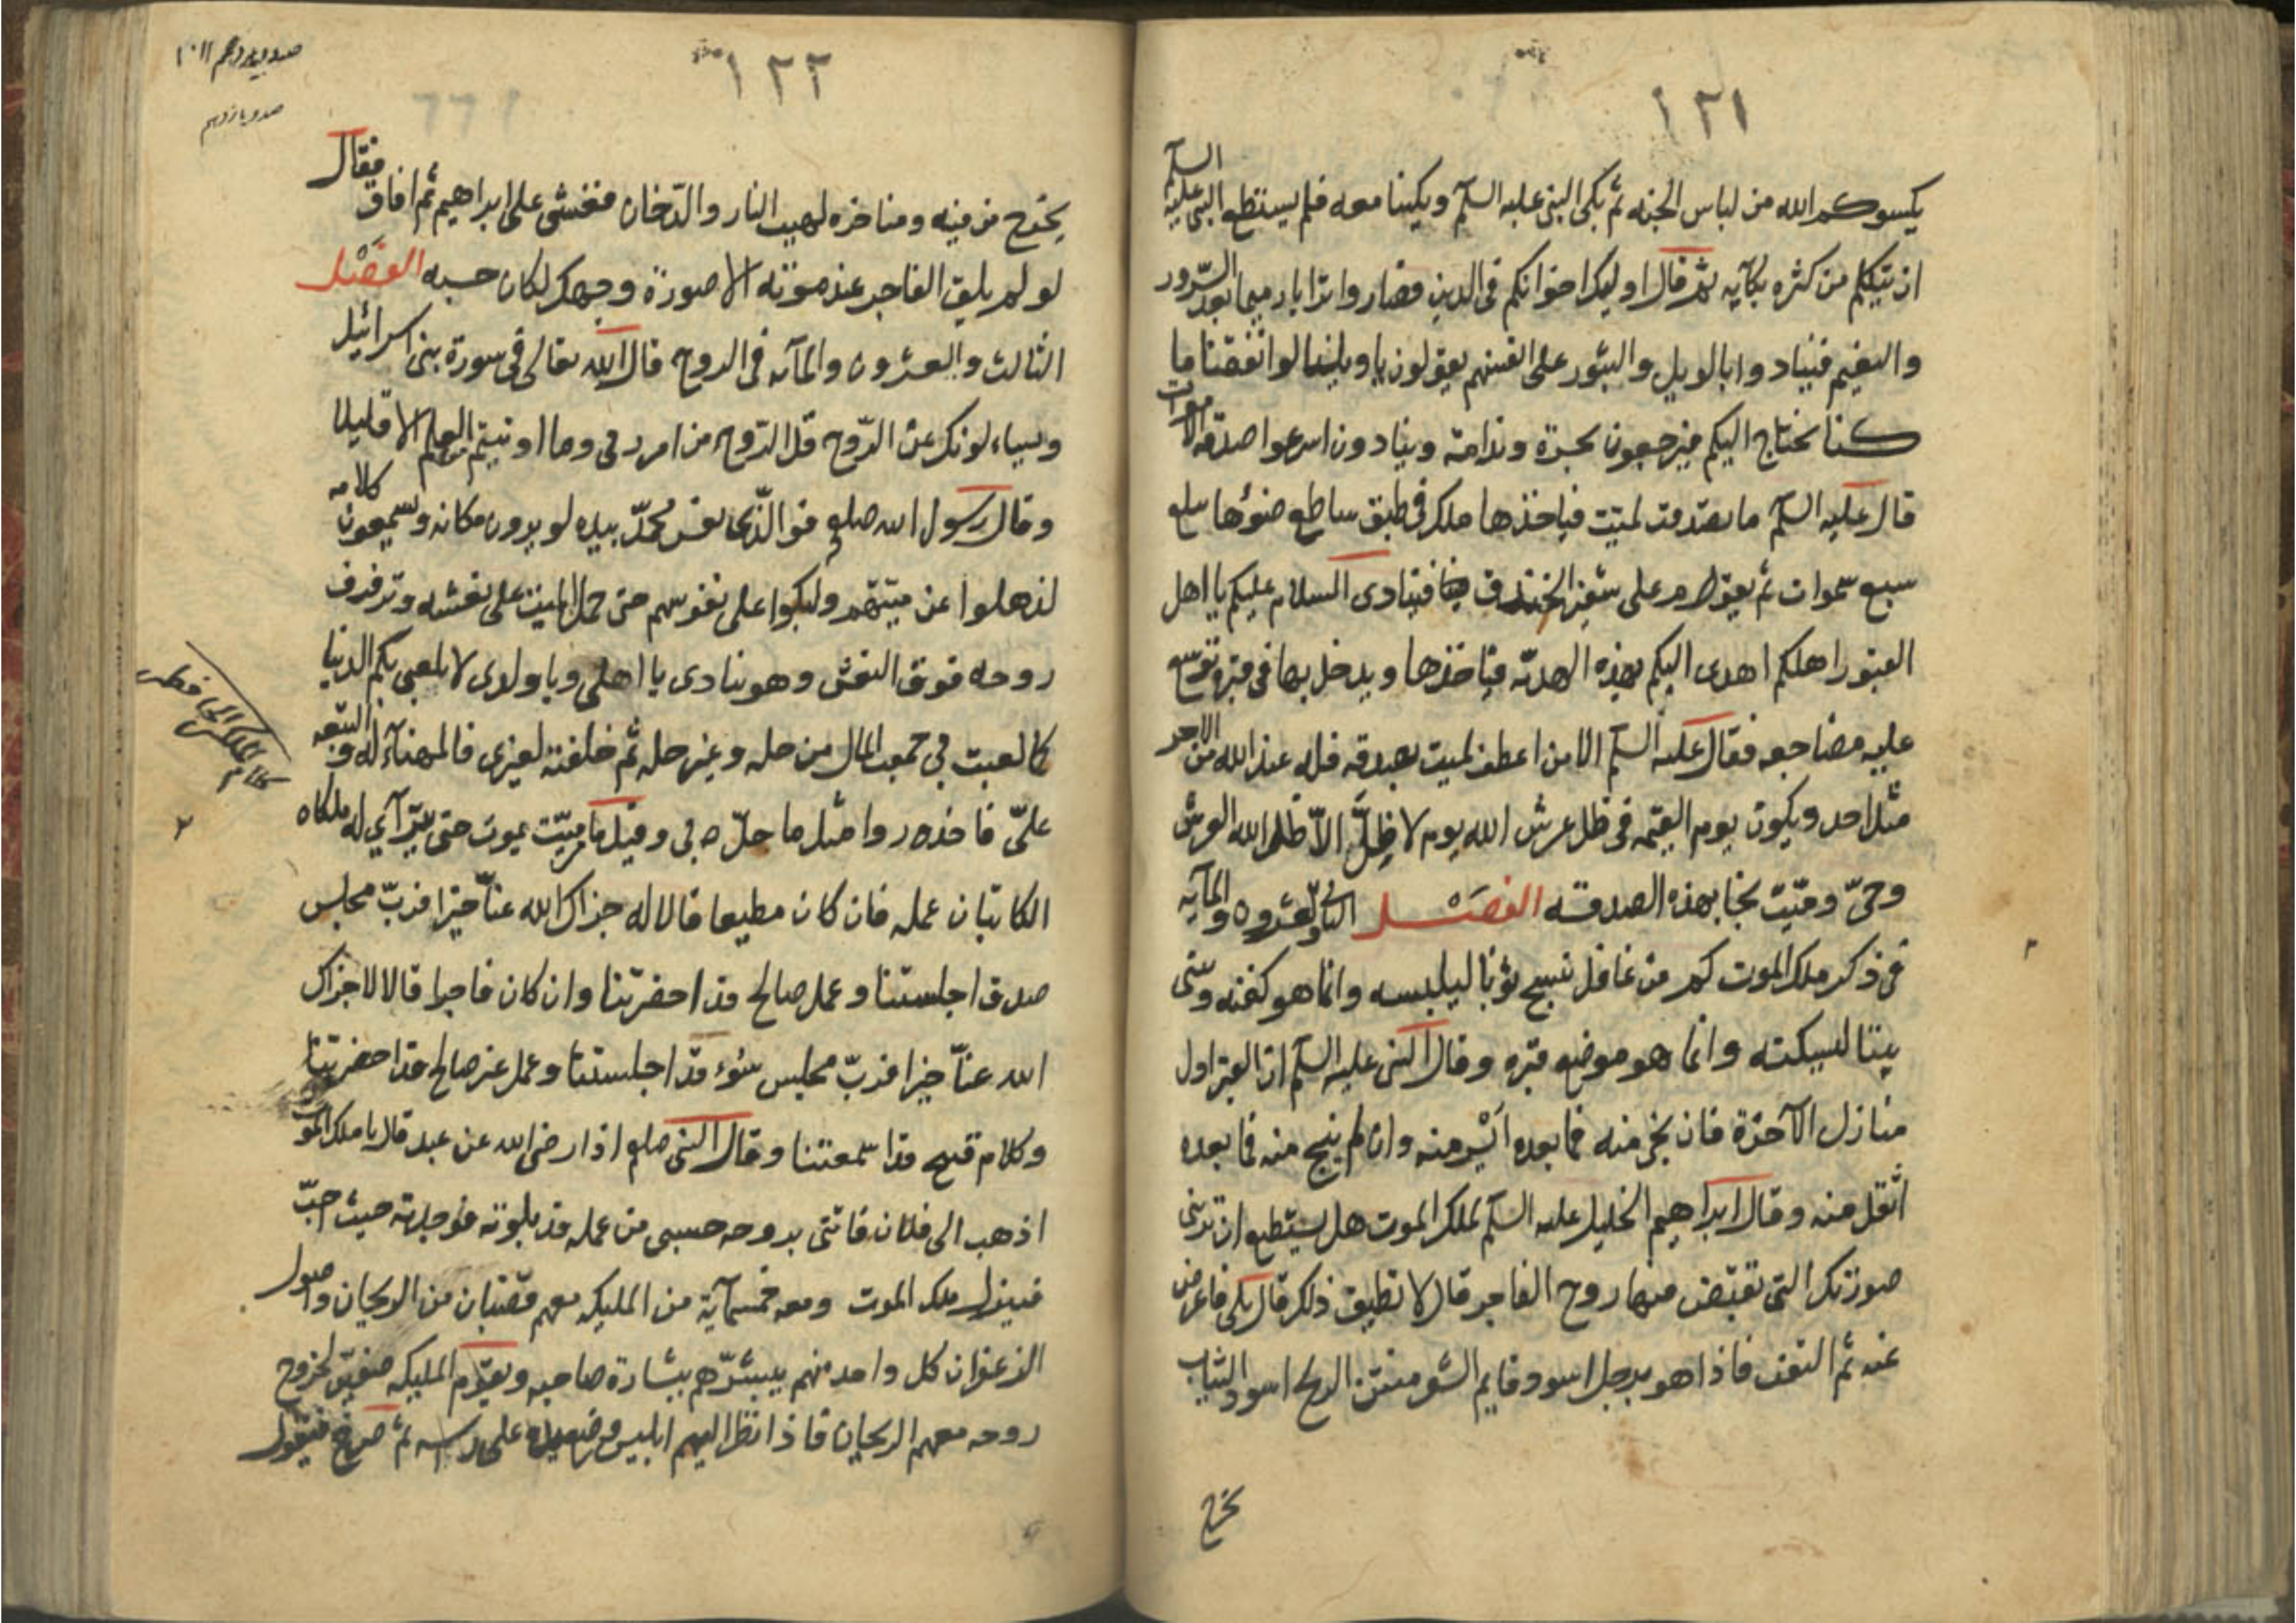 ١٢١
السلم
يكسوكم الله من لباس الجنه ثم بكى النبى عليه السلم وبكينا معه فلم يستطع النبى عليه
ان يتكلم من كثره بكآيه ثم قال اوليك اخوانكم فى الدين فصاروا ترابا رميما بعد السّرور
والنعيم فينادوا بالويل والثبور على انفسهم يقولون يا ويلنا لو انفقنا ما
كنا نحتاج اليكم فيرجعون بحسرة وندامة وينادون اسرعوا صدقة الاموات
قال عليه السلم ما تصدقت لميّت فياخذها ملك فى طبق ساطع ضوئها سبلغ
سبع سموات ثم يقوم على شفير الخندق فينادى السلام عليكم يا اهل
القبور اهلكم اهدى اليكم بهذه الهديّة فياخذها ويدخل بها فى قبره توسّع
عليه مضاجعه فقال عليه السلم الا من اعطف لميت بصدقه فله عند الله من الاجر
مثل احد ويكون يوم القيمه فى ظل عرش الله يوم لا ظِلَّ الاّ ظله الله العرش
وحىّ وميّت نجا بهذه الصدقه الفصَــل الثانى والعشرون والمآيه
فى ذكر ملك الموت كم من غافل نسج ثوبا ليلبسه وانما هو كفنه وبنى
بيتا ليسكنه وانما هو موضع قبره وقال النبى عليه السلم انّ القبر اول
منازل الآخرة فان نجى منه فما بعده ايسر منه وان لم ينج منه فما بعده
اثقل منه وقال ابراهيم الخليل عليه السلم لملك الموت هل يستطيع ان ترينى
صورتك التى تقبض فيها روح الفاجر قال لا تطيق ذلك قال بلى فاعرض
عنه ثم التفت فاذا هو برجل اسود قايم الشعر منتن الريح اسود الثياب
يخرج
١٢٢
صد و يازدهم
يخرج من فيه ومناخره لهيب النار والدّخان فغشى على ابراهيم ثم افاق فقال
لو لم يلق الفاجر عند موته الا صورة وجهك لكان حسبه الفصَــل
الثالث والعشرون والمآيه فى الروح قال الله تعالى فى سورة بنى اسرائيل
ويسئلونك عن الرّوح قل الرّوح من امر ربى وما اوتيتم من العلم الا قليلا
وقال رسول الله صلعم فوالّذى نفس محمّد بيده لو يرون مكانه ويسمعون كلامه
لذهلوا عن ميّتهم ولبكوا على نفوسهم حتى حمل الميت على نعشه وترفرف
روحه فوق النعش وهو ينادى يا اهلى ويا ولدى لا يلعبى بكم الدنيا
كما لعبت بى جمعت المال من حله وغير حله ثم خلفته لغيرى فالمهنآء له والتبعه
علىّ فاحذروا مثل ما حلّ بى وقيل ما ميّت يموت حتى يترآى له ملكاه
الكاتبان عمله فان كان مطيعا قالا له جزاك الله عنّا خيرا فربّ مجلس
صدق اجلستنا وعمل صالح قد احضرتنا وان كان فاجرا قالا لا جزاك
الله عنّا خيرا فربّ مجلس سوء قد اجلستنا وعمل غير صالح قد احضرتنا
وكلام قبيح قد اسمعتنا وقال النبى صلعم اذا رضى الله عن عبد قال يا ملك الموت
اذهب الى فلان فاتنى بروحه حسبى من عمله قد بلوته فوجدته حيث احبّ
فينزل ملك الموت ومعه خمسمآية من المليكه معهم قضبان من الريحان واصول
الزعفران كل واحد منهم يبشّرهم ببشارة صاحبه ويقوم المليكه صفين لخروج
روحه معهم الريحان فاذا نظر اليهم ابليس وضع يده على راسه ثم صرخ فيقول